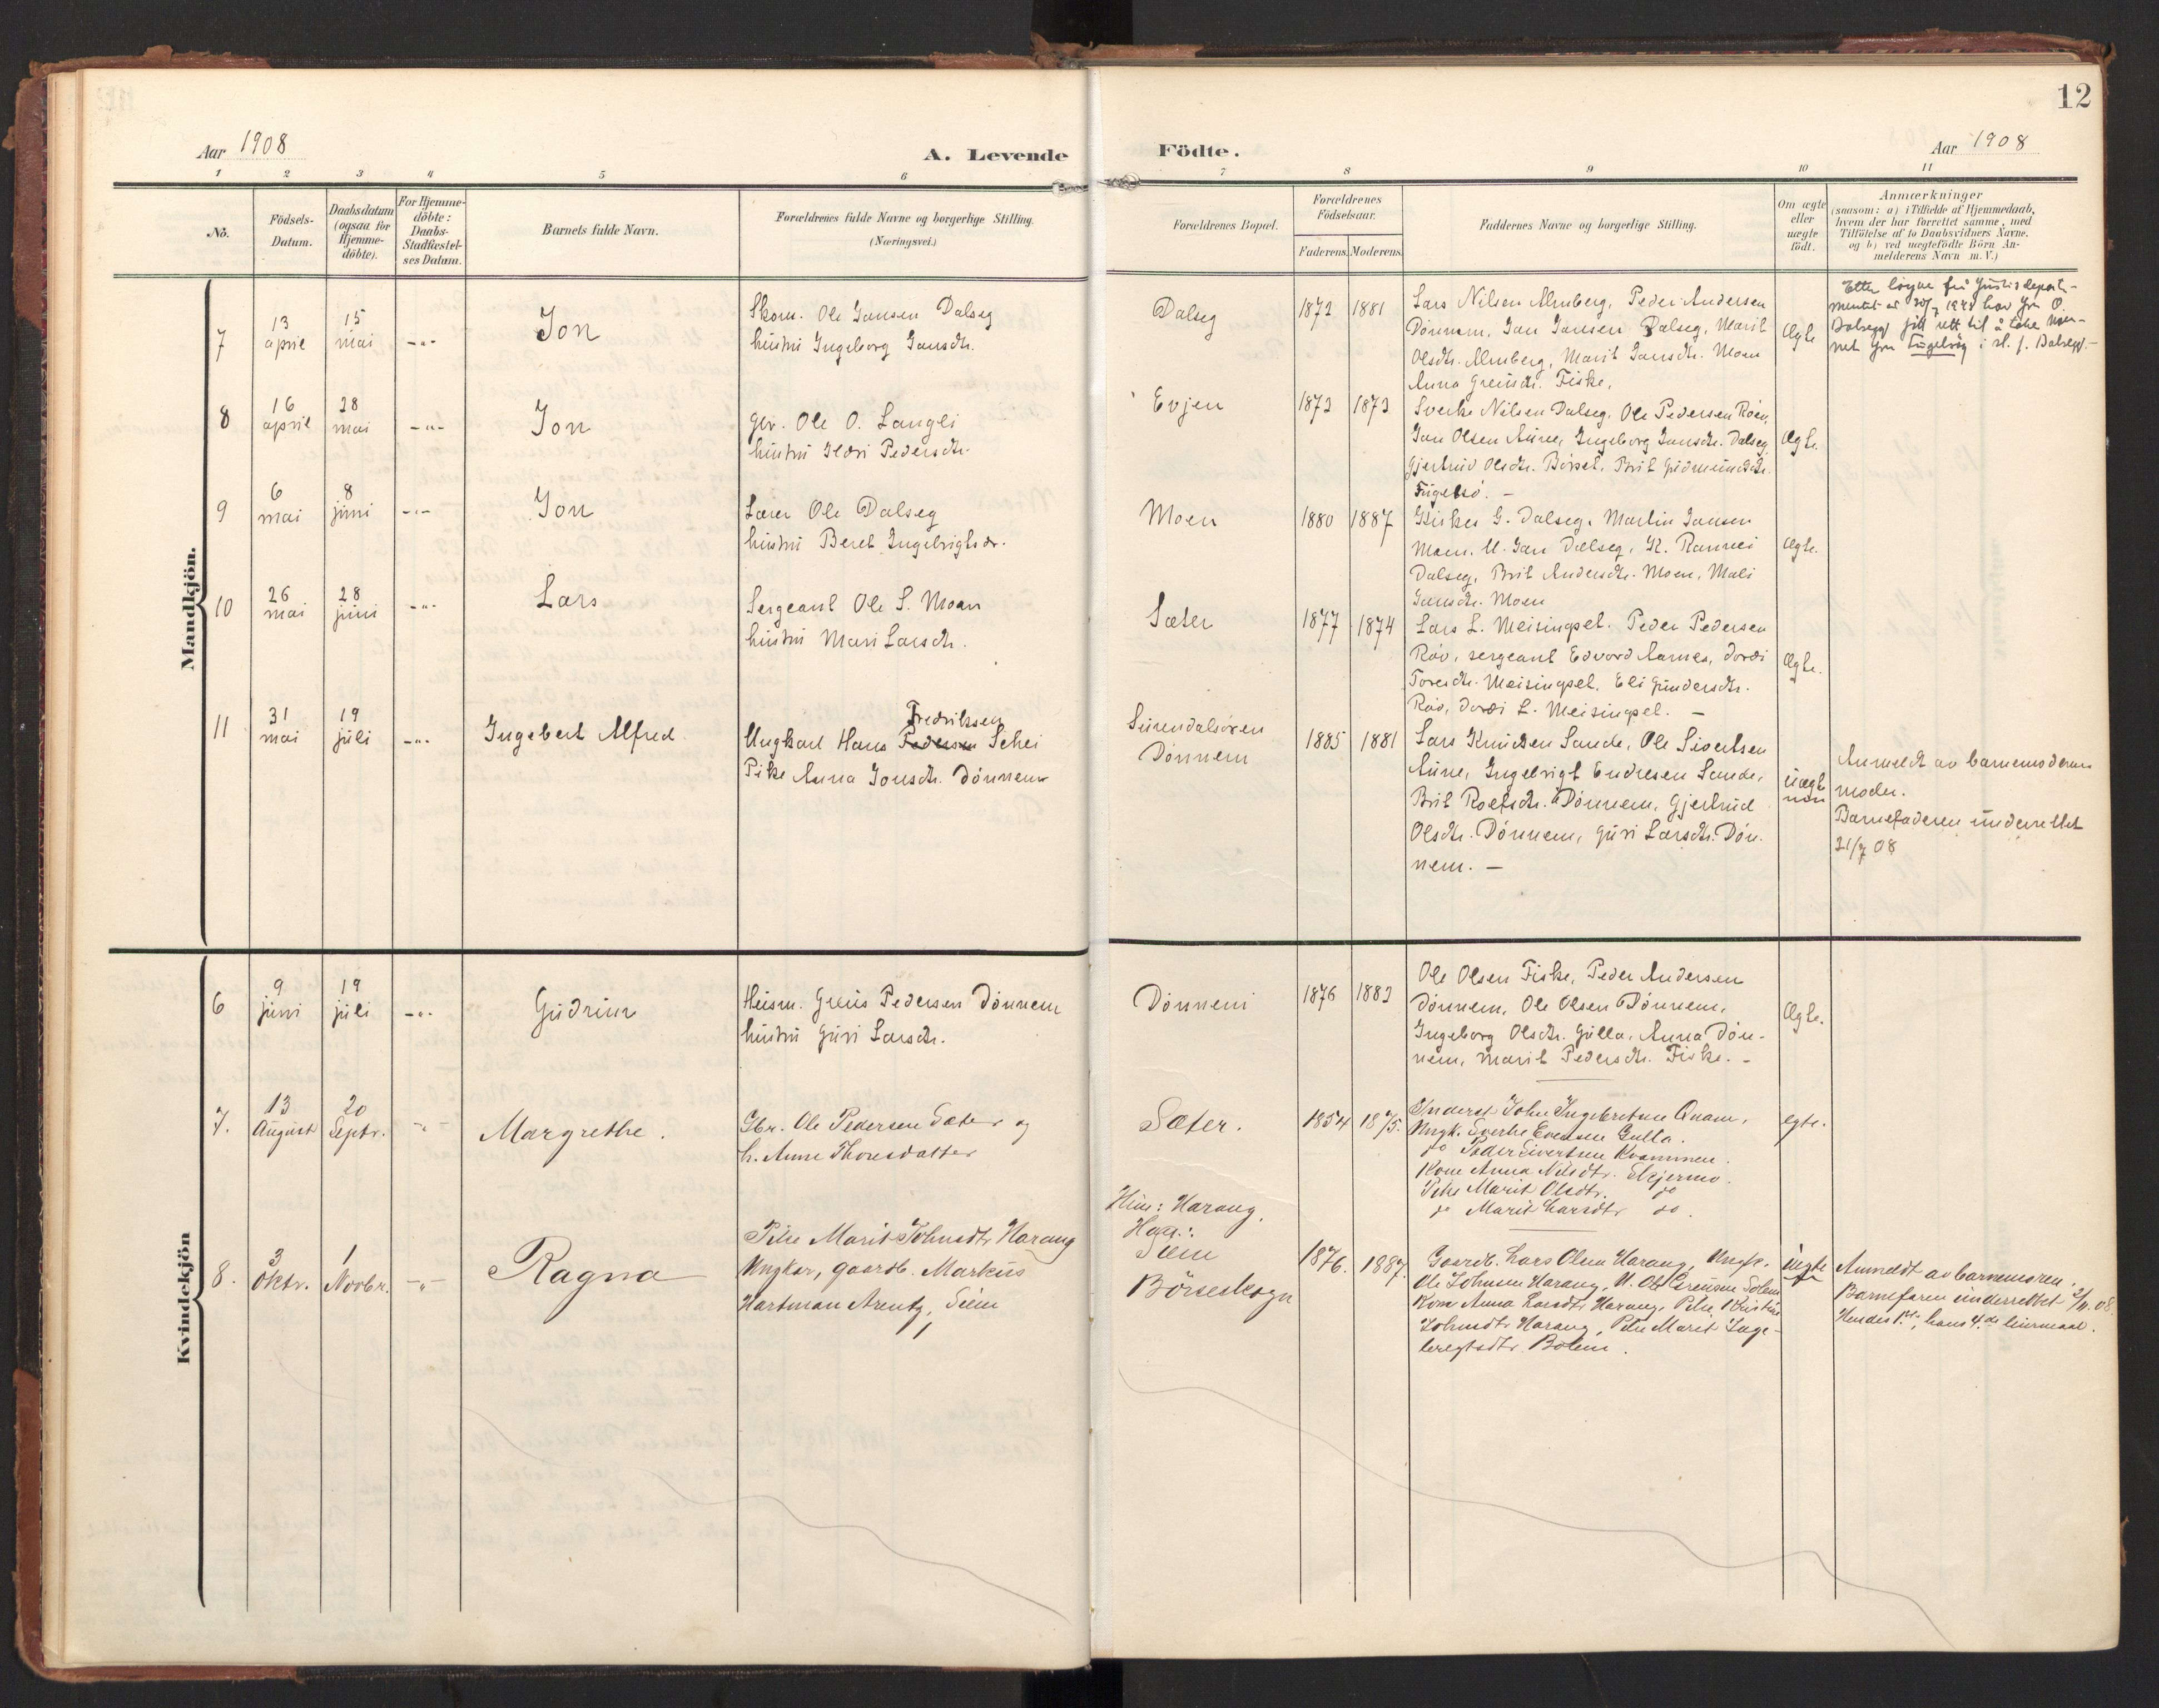 12
Aar 1908
A. Levende
Födte.
Aar 1908
1 2 3 4 5 6 7 8 9 10 11
No.
Födsels-
Datum.
Daabsdatum
(ogsaa for
Hjemme-
döbte).
For Hjemme-
döbte:
Daabs-
Stadfæstel-
ses Datum.
Barnets fulde Navn.
Forældrenes fulde Navne og borgerlige Stilling.
(Næringsvei.)
Forældrenes Bopæl.
Forældrenes
Födselsaar.
Faderens. Moderens.
Faddernes Navne og borgerlige Stilling.
Om ægte
eller
uægte
födt.
Anmærkninger
(saasom: a) i Tilfælde af Hjemmedaab,
hvem der har forrettet samme, med
Tilföielse af to Daabsvidners Navne.
og b) ved uægtefödte Börn An-
melderens Navn m.V.)
Mandkjön.
7
13
april
15
mai
-„-
Jon
Skom. Ole Jonsen Dalseg
hustru Ingeborg Jonsdtr.
Dalseg
1872 1881
Lars Nilsen Almberg, Peder Andersen
Dönnem, Jon Jonsen Dalseg, Marit
Olsdtr. Almberg, Marit Jonsdtr. Moen
Anna Greisdtr. Fiske,
Ægte
Etter løyve frå Justisdeparte-
mentet
8
16
april
28
mai
-„-
Jon
Gbr. Ole O. Langli
hustru Ildri Pedersdtr.
Evjen
1873 1873
Sverke Nilsen Dalseg, Ole Pedersen Röen,
Jon Olsen Aune, Ingeborg Jonsdtr. Dalseg
Gjertrud Olsdtr. Börset, Brit Gudmundsdtr.
Fugelsö. -
Ægte.
9
6
mai
8
juni
-„-
Jon
Lærer Ole Dalseg
hustru Beret Ingebrigtsdr.
Moen
1880 1887
G. Dalseg, Martin Jonsen
Moen, U. Jon Dalseg, K. Rannei
Dalseg, Brit Andersdtr. Moen, Mali
Jonsdtr. Moen
Ægte.
10
26
mai
28
juni
-„-
Lars
Sergeant Ole S. Moen
hustru Mari Larsdtr.
Sæter
1877 1874
Lars L. Meisingset. Peder Pedersen
Röv, sergeant Edvard Aarnes, Dordi
Toresdtr. Meisingset. Eli Gundersdtr.
Röv, Dordi L. Meisingset. -
Ægte.
11
31
mai
19
juli
-„-
Ingebert Alfred
Fredriksen
Ungkarl Hans Pedersen Schei
Pike Anna Jonsdtr. Dönnem
Surendalsören
Dönnem
1885 1881
Lars Knudsen Sande, Ole Sivertsen
Aune, Ingebrigt Endresen Sande,
Brit Roefsdtr. Dönnem, Gjertrud
Olsdtr. Dönnem, Guri Larsdtr. Dön-
nem. -
uægte
Anmeldt av barnemoderens
moder.
Barnefaderen underrettet
21/7 08
Kvindekjön
6
9
juni
19
juli
-„-
Gudrun
Husm. Greis Pedersen Dönnem
hustru Guri Larsdtr.
Dönnem
1876 1883
Ole Olsen Fiske, Peder Andersen
Dönnem, Ole Olsen Dönnem,
Ingeborg Olsdtr. Gulla, Anna Dön-
nem, Marit Pedersdtr. Fiske. -
Ægte.
7.
13
August
20
Septr.
-„-
Margrethe.
Gbr. Ole Pedersen Sæter og
h. Anne Thoresdatter
Sæter.
1854 1875.
Inderst John Ingebretsen Qvam,
Ungk. Sverke Evensen Gulla.
do Peder Sivertsen Kvammen.
Kone Anna Nilsdtr. Skjermo.
Pike Marit Olsdtr. do
do Marit Larsdtr do.
egte.
8.
3
Oktr.
1
Novbr.
-„-
Ragna
Pike Marit Johnsdtr Harang
Ungkar, gaardb. Markus
Hartman Arentz, Siem
Hun: Harang.
Han:
Siem
Börseskogn
1876. 1887.
Gaardb. Lars Olsen Harang, Ungk.
Ole Johnsen Harang, U. Ole Greisen Solem
Kone Anna Larsdtr Harang, Pike Kristine
Johnsdtr Harang, Pike Marit Inge-
brigtsdtr. Bolem.
uegte
Anmeldt av barnemoren.
Barnefaren underrettet 2/11.08.
Hendes 1ste, hans 4de leiermaal.